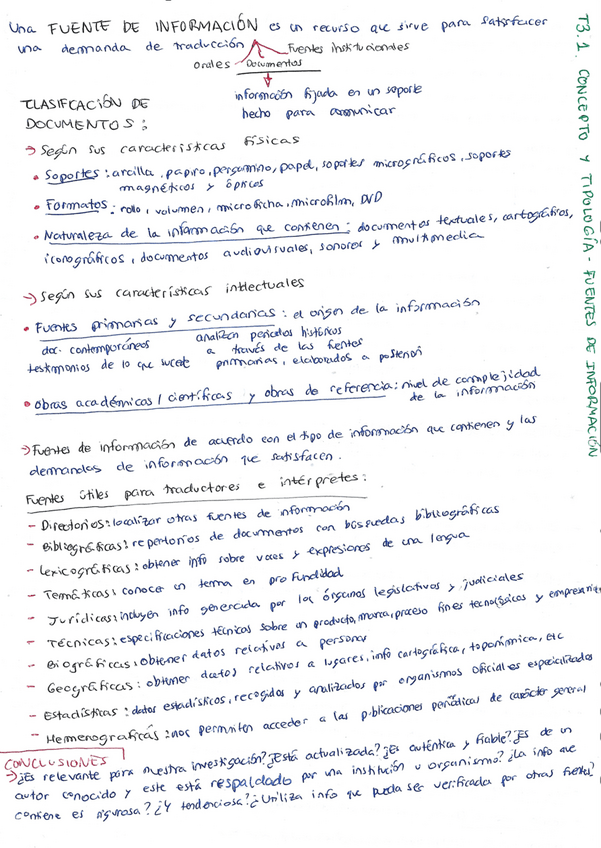 T3.1. CONCEPTO Y TIPOLOGÍA - FUENTES DE INFORMACIÓN
Una FUENTE DE INFORMACIÓN es un recurso que sirve para satisfacer
una demanda de traducción
Fuentes institucionales
orales
Documentos
información fijada en un soporte
hecho para comunicar
CLASIFICACIÓN DE
DOCUMENTOS:
→ Según sus características físicas
• Soportes: arcilla, papiro, pergamino, papel, soportes micrográficos, soportes
magnéticos y ópticos
• Formatos: rollo, volumen, microficha, microfilm, DVD
• Naturaleza de la información que contienen: documentos textuales, cartográficos,
iconográficos, documentos audiovisuales, sonoros y multimedia
→ Según sus características intlectuales
• Fuentes primarias y secundarias: el origen de la información
doc. contemporáneos
testimonios de lo que sucede
analizan periodos históricos
a través de las fuentes
primarias, elaborados a posteriori
• Obras académicas / científicas y obras de referencia: nivel de complejidad
de la información
→ Fuentes de información de acuerdo con el tipo de información que contienen y las
demandas de información que satisfacen.
Fuentes útiles para traductores e intérpretes:
- Directorios: localizar otras fuentes de información
- Bibliográficas: repertorios de documentos con búsquedas bibliográficas
- Lexicográficas: obtener info sobre voces y expresiones de una lengua
- Temáticas: conocer un tema en profundidad
- Jurídicas: incluyen info generada por los órganos legislativos y judiciales
- Técnicas: especificaciones técnicas sobre un producto, marca, proceso fines tecnológicos y
- Biográficas: obtener datos relativos a personas
- Geográficas: obtener datos relativos a lugares, info cartográfica, toponímica, etc
- Estadísticas: datos estadísticos, recogidos y analizados por organismos oficiales especializados
- Hemerográficas: nos permiten acceder a las publicaciones periódicas de carácter general
CONCLUSIONES
→ ¿Es relevante para nuestra investigación? ¿Está actualizada? ¿Es auténtica y fiable? ¿Es de un
autor conocido y este está respaldado por una institución u organismo? ¿La info que
contiene es rigurosa? ¿Y tendenciosa? ¿Utiliza info que pueda ser verificada por otras fuentes?